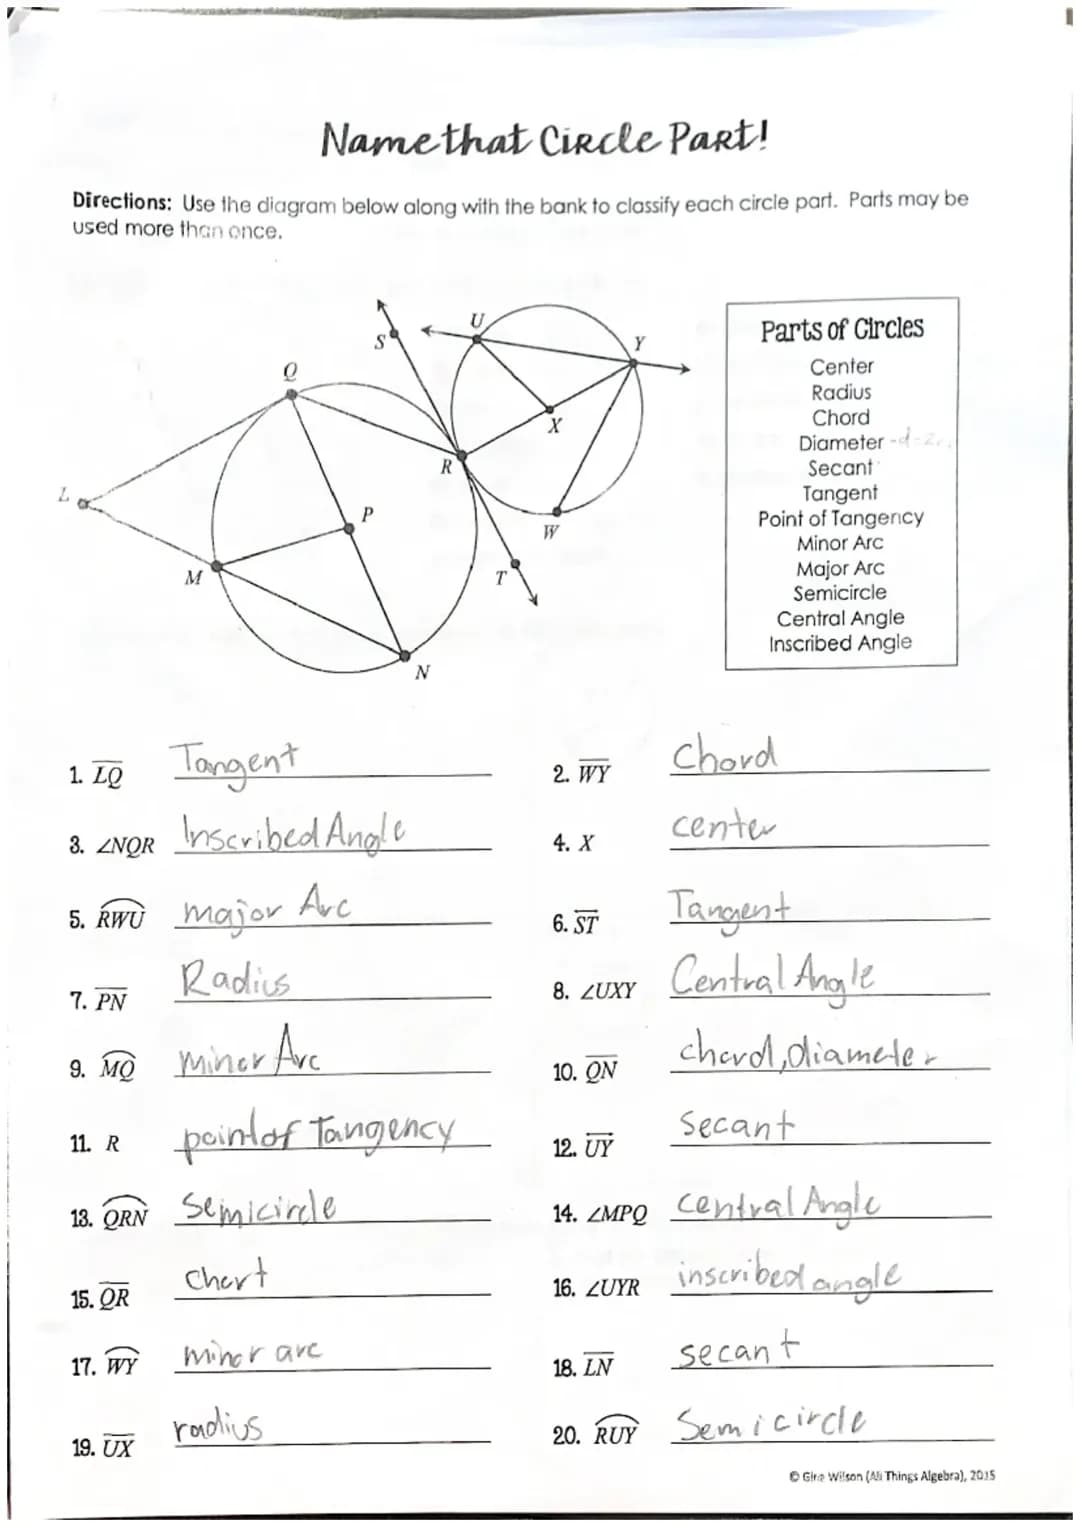 Name that Circle Part!
Directions: Use the diagram below along with the bank to classify each circle part. Parts may be
used more than once.
S
U
Y
Q
X
R
L
P
W
M
T
N
Parts of Circles
Center
Radius
Chord
Diameter -d=2r
Secant
Tangent
Point of Tangency
Minor Arc
Major Arc
Semicircle
Central Angle
Inscribed Angle
1. LQ Tangent
2. WY Chord
3. ∠NQR Inscribed Angle
4. X center
5. RWU major Arc
6. ST Tangent
7. PN Radius
8. ∠UXY Central Angle
9. MQ minor Arc
10. QN chord, diameter
11. R point of Tangency
12. UY Secant
13. QRN Semicircle
14. ∠MPQ central Angle
15. QR Chort
16. ∠UYR inscribed angle
17. WY minor arc
18. LN secant
19. UX radius
20. RUY Semicircle
© Gina Wilson (All Things Algebra), 2015